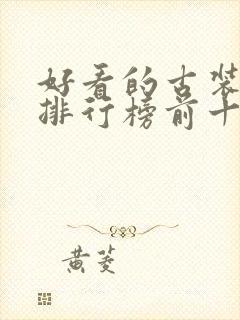 好看的古装
排行榜前十
黄菱